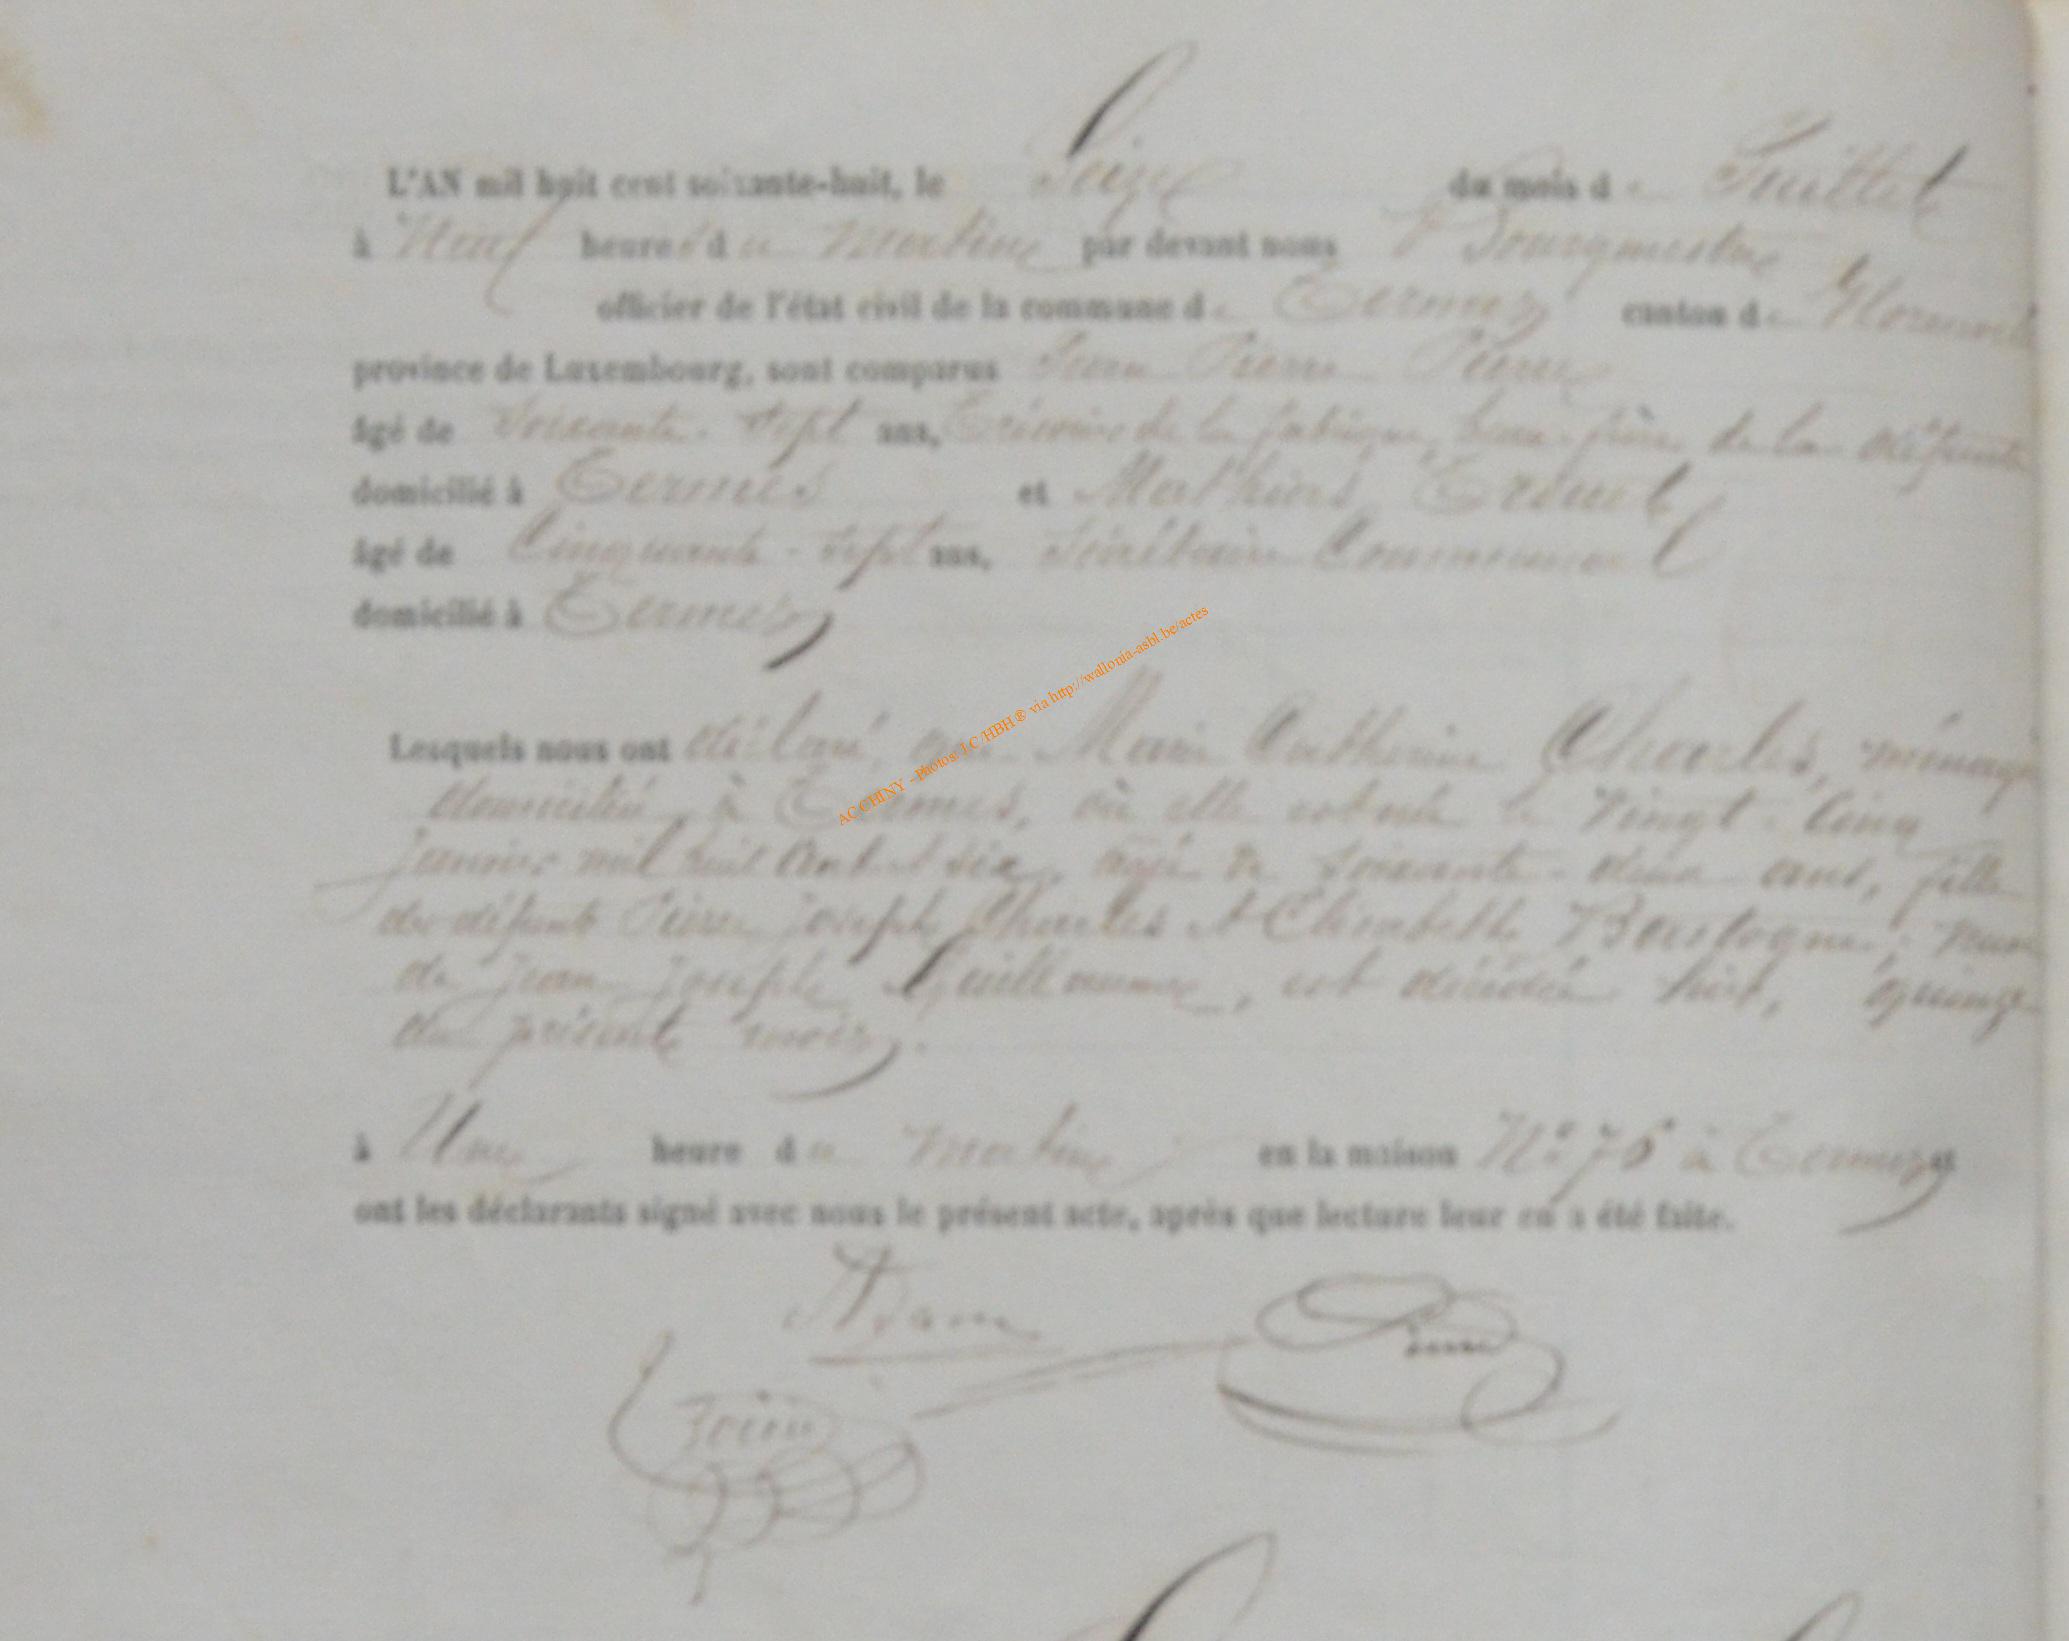 L'AN mil huit cent soixante-huit, le Seize du mois de Juillet
à Neuf heures du matin par devant nous Bourgmestre
officier de l'état civil de la commune de Termes canton de Florenville
province de Luxembourg, sont comparus Jean Pierre Pierre
âgé de Soixante-sept ans, de la fabrique, beau-frère de la défunte
domicilié à Termes et Mathias
âgé de Cinquante-sept ans, Secrétaire Communal
domicilié à Termes
Lesquels nous ont déclaré que Marie Catherine Charles, ménagère
domiciliée à Termes, où elle est née le vingt-cinq
janvier mil huit cent et six, âgée de soixante-deux ans, fille
des défunts Pierre Joseph Charles et Elisabeth Bastogne,
de Jean Joseph Guillaume, est décédée hier, quinze
du présent mois,
à Une heure du matin en la maison N° 76 à Termes et
ont les déclarants signé avec nous le présent acte, après que lecture leur en a été faite.
Adam
Pierre
AC CHINY - Photos: J.C/HBH ® via http://wallonia-asbl.be/actes